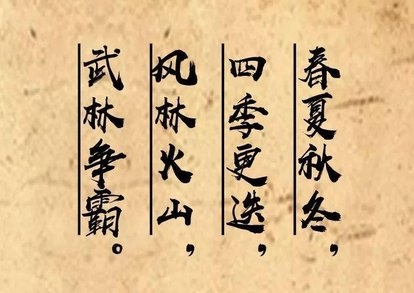 春夏秋冬，
四季更迭，
风林火山，
武林争霸。